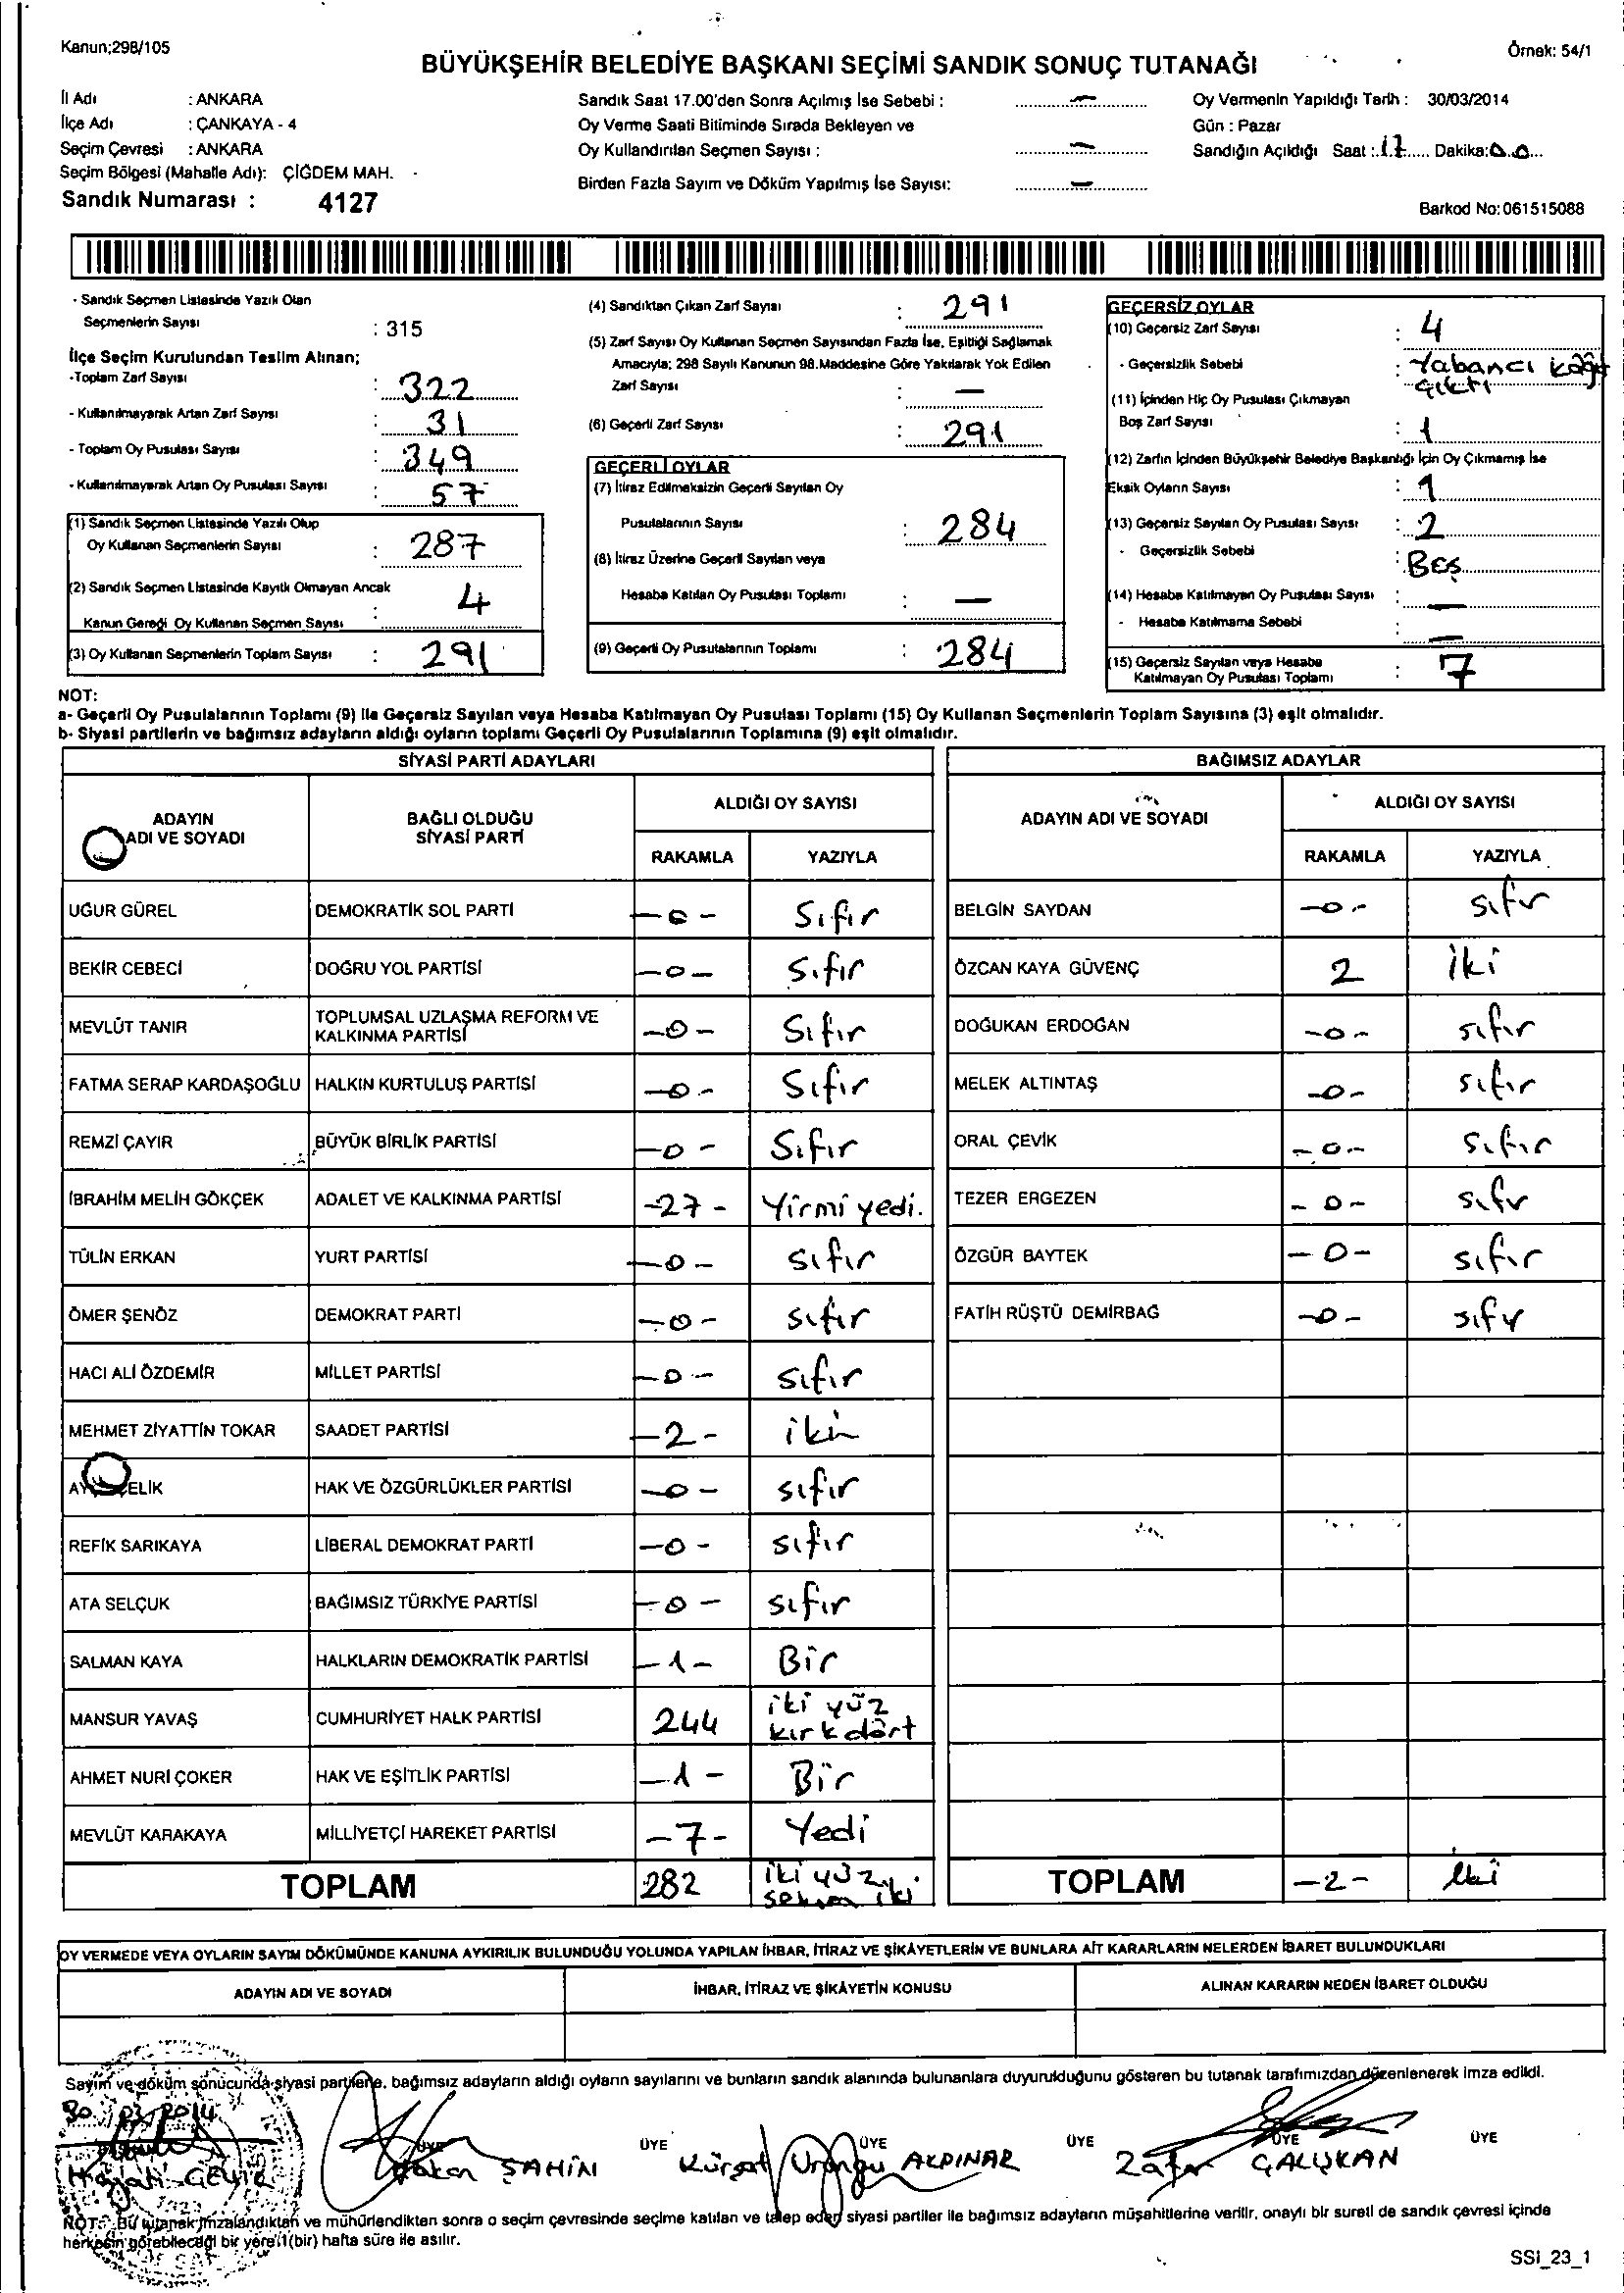 Kanun;298/105
Örnek: 54/1
BÜYÜKŞEHİR BELEDİYE BAŞKANI SEÇİMİ SANDIK SONUÇ TUTANAĞI
İl Adı : ANKARA
İlçe Adı : ÇANKAYA - 4
Seçim Çevresi : ANKARA
Seçim Bölgesi (Mahalle Adı): ÇİĞDEM MAH.
Sandık Numarası : 4127
Sandık Saat 17.00'den Sonra Açılmış İse Sebebi : —
Oy Verme Saati Bitiminde Sırada Bekleyen ve
Oy Kullandırılan Seçmen Sayısı : —
Birden Fazla Sayım ve Döküm Yapılmış İse Sayısı: —
Oy Vermenin Yapıldığı Tarih : 30/03/2014
Gün : Pazar
Sandığın Açıldığı Saat : 17 Dakika: 0.0
Barkod No:061515088
- Sandık Seçmen Listesinde Yazılı Olan
Seçmenlerin Sayısı : 315
İlçe Seçim Kurulundan Teslim Alınan;
-Toplam Zarf Sayısı : 322
- Kullanılmayarak Artan Zarf Sayısı : 31
- Toplam Oy Pusulası Sayısı : 349
- Kullanılmayarak Artan Oy Pusulası Sayısı : 57
(1) Sandık Seçmen Listesinde Yazılı Olup
Oy Kullanan Seçmenlerin Sayısı : 287
(2) Sandık Seçmen Listesinde Kayıtlı Olmayan Ancak
Kanun Gereği Oy Kullanan Seçmen Sayısı : 4
(3) Oy Kullanan Seçmenlerin Toplam Sayısı : 291
(4) Sandıktan Çıkan Zarf Sayısı : 291
(5) Zarf Sayısı Oy Kullanan Seçmen Sayısından Fazla İse, Eşitliği Sağlamak
Amacıyla; 298 Sayılı Kanunun 98.Maddesine Göre Yakılarak Yok Edilen
Zarf Sayısı : —
(6) Geçerli Zarf Sayısı : 291
GEÇERLİ OYLAR
(7) İtiraz Edilmeksizin Geçerli Sayılan Oy
Pusulalarının Sayısı : 284
(8) İtiraz Üzerine Geçerli Sayılan veya
Hesaba Katılan Oy Pusulası Toplamı : —
(9) Geçerli Oy Pusulalarının Toplamı : 284
GEÇERSİZ OYLAR
(10) Geçersiz Zarf Sayısı : 4
- Geçersizlik Sebebi : Yabancı kağıt
çıktı
(11) İçinden Hiç Oy Pusulası Çıkmayan
Boş Zarf Sayısı : 1
(12) Zarfın İçinden Büyükşehir Belediye Başkanlığı İçin Oy Çıkmamış İse
Eksik Oyların Sayısı : 1
(13) Geçersiz Sayılan Oy Pusulası Sayısı : 2
- Geçersizlik Sebebi : Beş
(14) Hesaba Katılmayan Oy Pusulası Sayısı : —
- Hesaba Katılmama Sebebi : —
(15) Geçersiz Sayılan veya Hesaba
Katılmayan Oy Pusulası Toplamı : 7
NOT:
a- Geçerli Oy Pusulalarının Toplamı (9) ile Geçersiz Sayılan veya Hesaba Katılmayan Oy Pusulası Toplamı (15) Oy Kullanan Seçmenlerin Toplam Sayısına (3) eşit olmalıdır.
b- Siyasi partilerin ve bağımsız adayların aldığı oyların toplamı Geçerli Oy Pusulalarının Toplamına (9) eşit olmalıdır.
SİYASİ PARTİ ADAYLARI
ADAYIN ADI VE SOYADI BAĞLI OLDUĞU SİYASİ PARTİ ALDIĞI OY SAYISI
RAKAMLA YAZIYLA
UĞUR GÜREL DEMOKRATİK SOL PARTİ -0- Sıfır
BEKİR CEBECİ DOĞRU YOL PARTİSİ -0- Sıfır
MEVLÜT TANIR TOPLUMSAL UZLAŞMA REFORM VE KALKINMA PARTİSİ -0- Sıfır
FATMA SERAP KARDAŞOĞLU HALKIN KURTULUŞ PARTİSİ -0- Sıfır
REMZİ ÇAYIR BÜYÜK BİRLİK PARTİSİ -0- Sıfır
İBRAHİM MELİH GÖKÇEK ADALET VE KALKINMA PARTİSİ -27- Yirmi yedi.
TÜLİN ERKAN YURT PARTİSİ -0- sıfır
ÖMER ŞENÖZ DEMOKRAT PARTİ -0- sıfır
HACI ALİ ÖZDEMİR MİLLET PARTİSİ -0- sıfır
MEHMET ZİYATTİN TOKAR SAADET PARTİSİ -2- iki
HAK VE ÖZGÜRLÜKLER PARTİSİ -0- sıfır
REFİK SARIKAYA LİBERAL DEMOKRAT PARTİ -0- sıfır
ATA SELÇUK BAĞIMSIZ TÜRKİYE PARTİSİ -0- sıfır
SALMAN KAYA HALKLARIN DEMOKRATİK PARTİSİ -1- Bir
MANSUR YAVAŞ CUMHURİYET HALK PARTİSİ 244 iki yüz kırk dört
AHMET NURİ ÇOKER HAK VE EŞİTLİK PARTİSİ -1- Bir
MEVLÜT KARAKAYA MİLLİYETÇİ HAREKET PARTİSİ -7- Yedi
TOPLAM 282 iki yüz seksen iki
BAĞIMSIZ ADAYLAR
ADAYIN ADI VE SOYADI ALDIĞI OY SAYISI
RAKAMLA YAZIYLA
BELGİN SAYDAN -0- sıfır
ÖZCAN KAYA GÜVENÇ 2 iki
DOĞUKAN ERDOĞAN -0- sıfır
MELEK ALTINTAŞ -0- sıfır
ORAL ÇEVİK -0- sıfır
TEZER ERGEZEN -0- sıfır
ÖZGÜR BAYTEK -0- sıfır
FATİH RÜŞTÜ DEMİRBAĞ -0- sıfır
TOPLAM -2- iki
OY VERMEDE VEYA OYLARIN SAYIM DÖKÜMÜNDE KANUNA AYKIRILIK BULUNDUĞU YOLUNDA YAPILAN İHBAR, İTİRAZ VE ŞİKÂYETLERİN VE BUNLARA AİT KARARLARIN NELERDEN İBARET BULUNDUKLARI
ADAYIN ADI VE SOYADI İHBAR, İTİRAZ VE ŞİKÂYETİN KONUSU ALINAN KARARIN NEDEN İBARET OLDUĞU
Sayım ve döküm sonucunda siyasi partilerle, bağımsız adayların aldığı oyların sayılarını ve bunların sandık alanında bulunanlara duyurulduğunu gösteren bu tutanak tarafımızdan düzenlenerek imza edildi.
30/03/2014
ÜYE ÜYE ÜYE ÜYE ÜYE ÜYE
ŞAHİN Kürşat AKPINAR Zafer ÇALIŞKAN
NOT: Bu tutanak imzalandıktan ve mühürlendikten sonra o seçim çevresinde seçime katılan ve talep eden siyasi partiler ile bağımsız adayların müşahitlerine verilir, onaylı bir sureti de sandık çevresi içinde
herkesin görebileceği bir yere 1(bir) hafta süre ile asılır.
SSİ_23_1